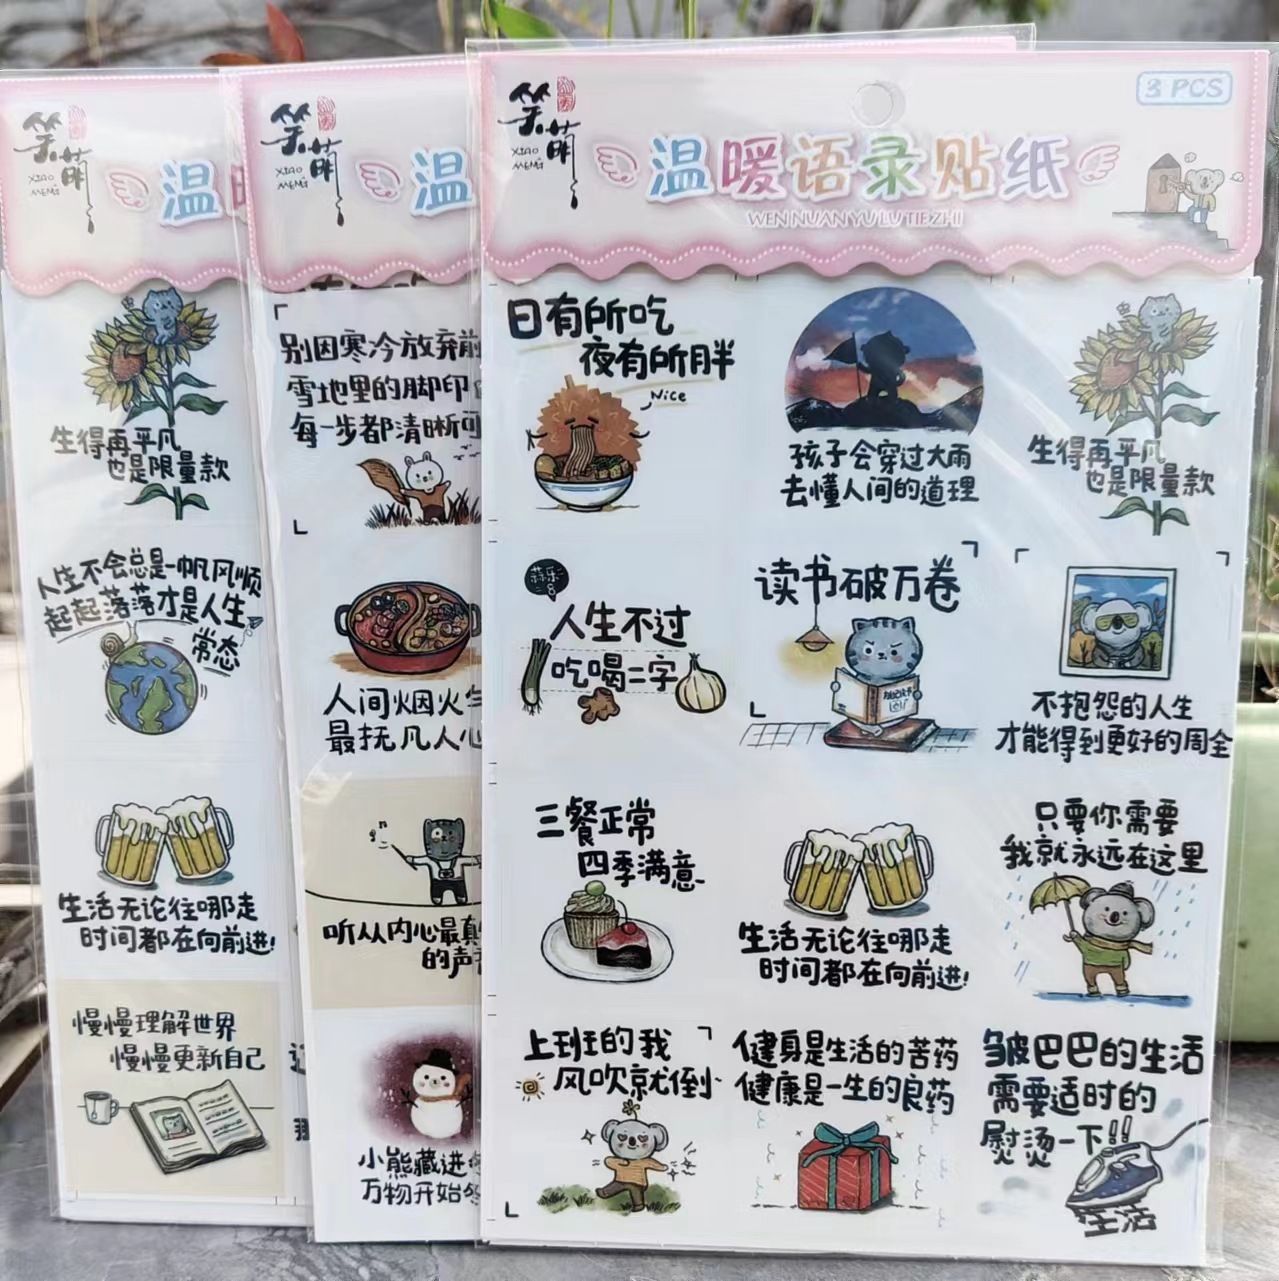 笑萌
XIAO
MENG
温
笑萌
XIAO
MENG
温
笑萌
XIAO
MENG
3 PCS
温暖语录贴纸
WEN NUAN YU LU TIE ZHI
生得再平凡
也是限量款
人生不会总是一帆风顺
起起落落才是人生
常态
生活无论往哪走
时间都在向前进!
慢慢理解世界
慢慢更新自己
别因寒冷放弃前
雪地里的脚印
每一步都清晰可
人间烟火
最抚凡人心
听从内心最真
的声
小熊藏进
万物开始
日有所吃
夜有所胖
Nice
孩子会穿过大雨
去懂人间的道理
生得再平凡
也是限量款
人生不过
吃喝二字
读书破万卷
不抱怨的人生
才能得到更好的周全
三餐正常
四季满意
生活无论往哪走
时间都在向前进!
只要你需要
我就永远在这里
上班的我
风吹就倒
健身是生活的苦药
健康是一生的良药
皱巴巴的生活
需要适时的
熨烫一下!!
生活